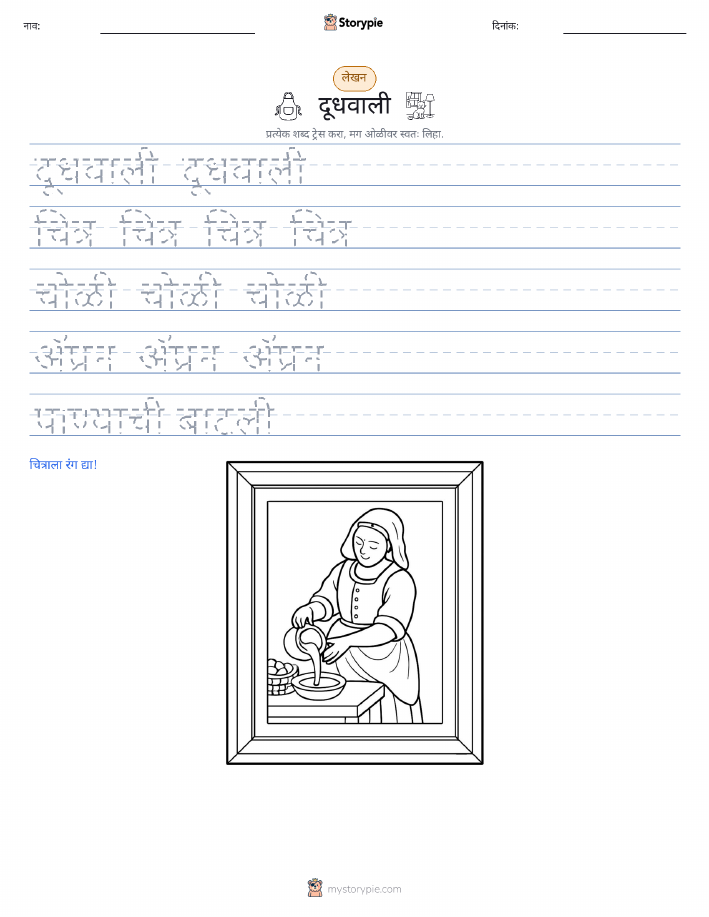 नाव: Storypie दिनांक:
लेखन
दूधवाली
प्रत्येक शब्द ट्रेस करा, मग ओळीवर स्वतः लिहा.
दूधवाली दूधवाली
चित्र चित्र चित्र चित्र
चोळी चोळी चोळी
ॲप्रन ॲप्रन ॲप्रन
पाण्याची बाटली
चित्राला रंग द्या!
mystorypie.com